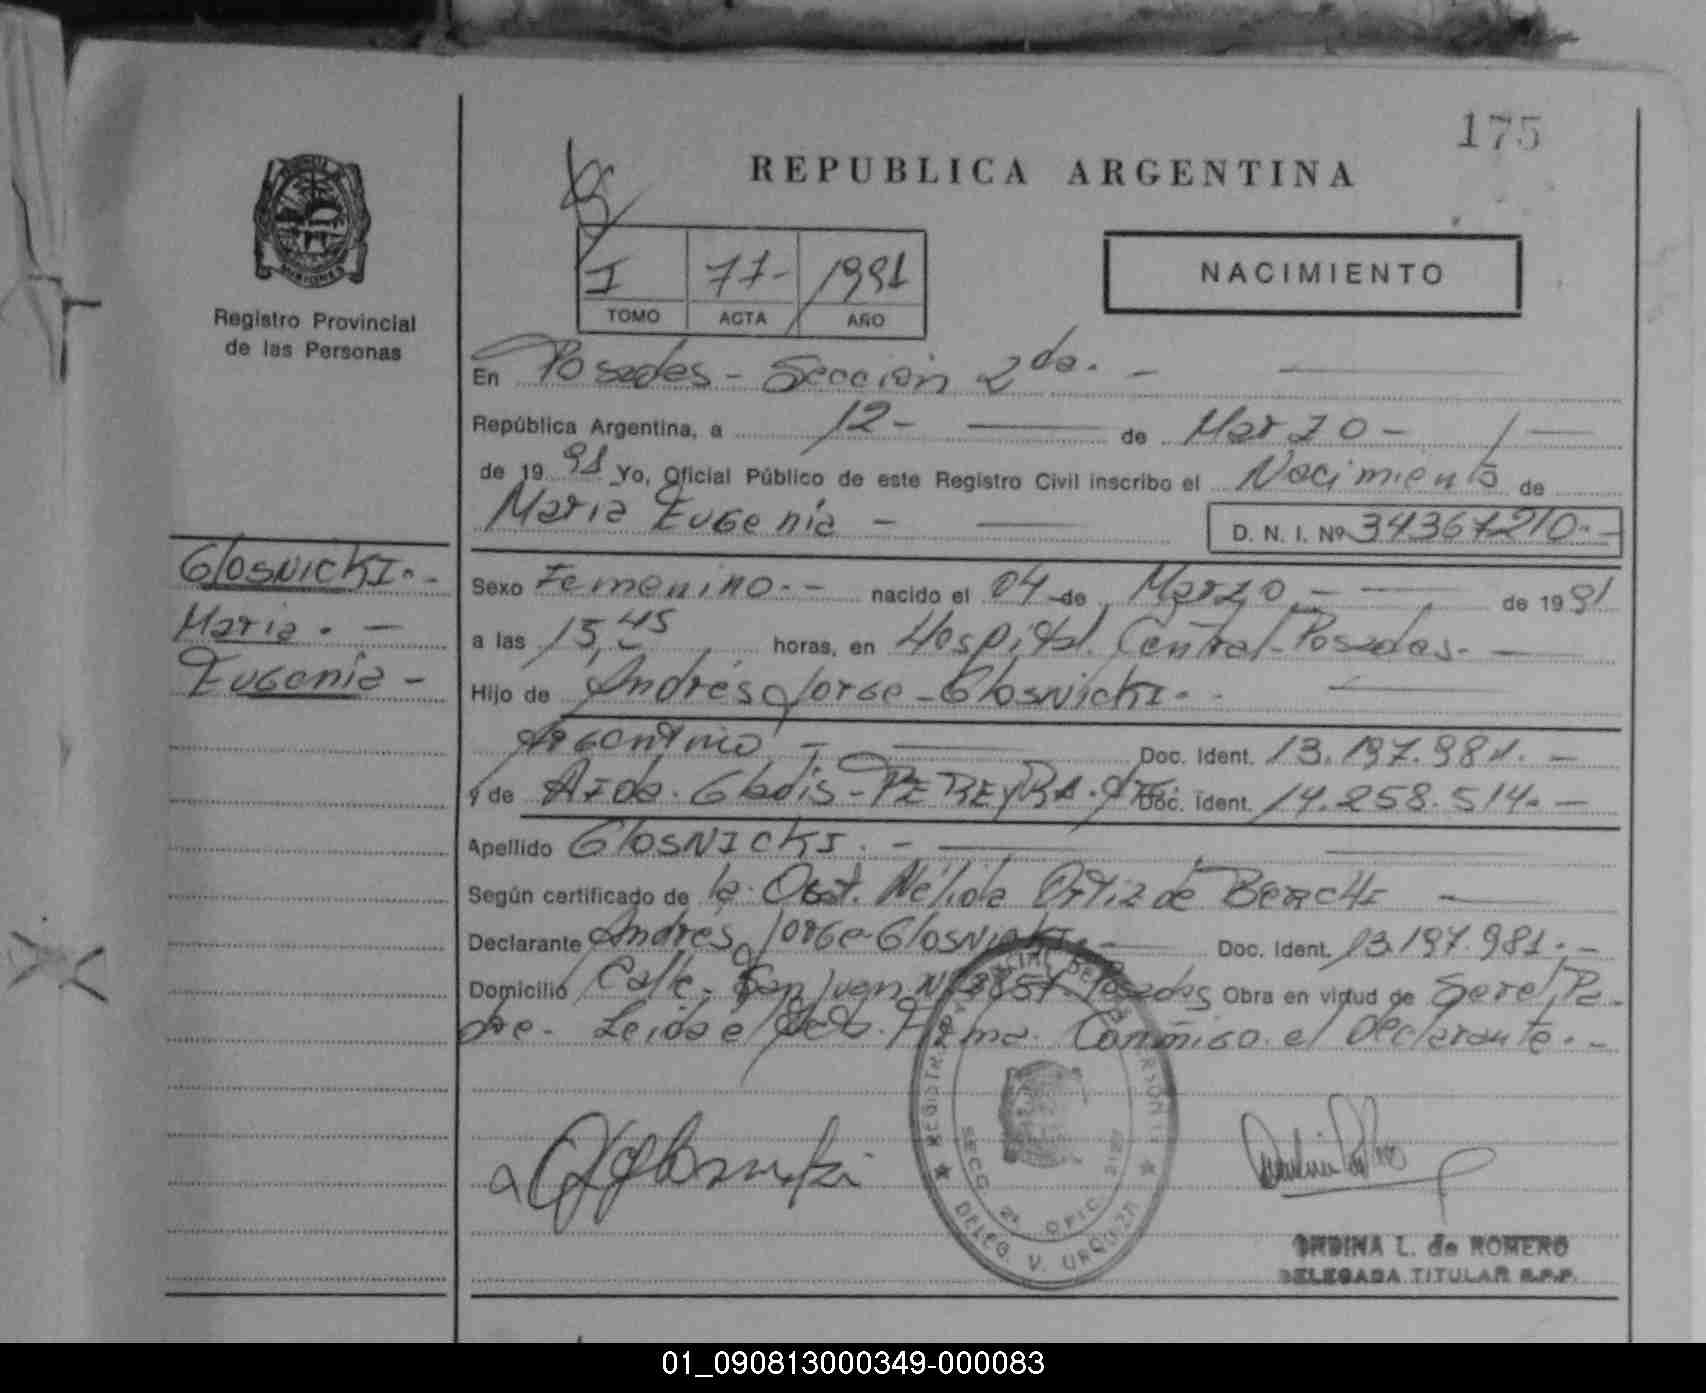 175
REPUBLICA ARGENTINA
MISIONES
Registro Provincial
de las Personas
I 77- 1991
TOMO ACTA AÑO
NACIMIENTO
En Posadas - Sección 2da. -
República Argentina, a 12- de Marzo -
de 1991 Yo, Oficial Público de este Registro Civil inscribo el Nacimiento de
Maria Eugenia - D. N. I. Nº 34367210.-
Glosnicki.-
Maria. -
Eugenia -
Sexo Femenino.- nacido el 04 de Marzo - de 1991
a las 15,45 horas, en Hospital Central-Posadas.-
Hijo de Andrés Jorge - Glosnicki.-
Argentino - Doc. Ident. 13.197.981.-
y de Aida. Gladis - PEREYRA. Doc. Ident. 14.258.514.-
Apellido Glosnicki. -
Según certificado de la Obst. Nélida Ortiz de
Declarante Andrés Jorge Glosnicki.- Doc. Ident. 13.197.981.-
Domicilio Calle. San Juan Nº Posadas Obra en virtud de Ser el Pa-
dre. Leida el Acta. Firma Conmigo el Declarante.-
REGISTRO PROVINCIAL DE LAS PERSONAS
SECC. 2ª OFIC.
DELEG. V. URQUIZA
ONDINA L. de ROMERO
DELEGADA TITULAR R.P.P.
01_090813000349-000083